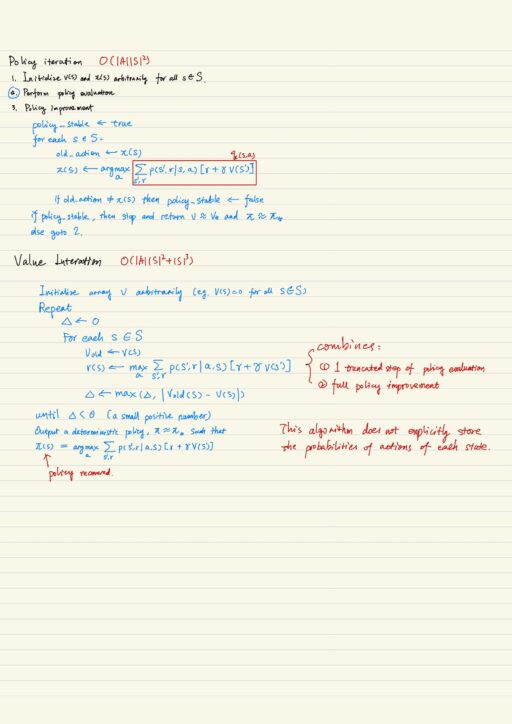 Policy iteration O(|A||S|²)
1. Initialize V(s) and π(s) arbitrarily for all s ∈ S.
2. Perform policy evaluation
3. Policy improvement
policy_stable ← true
for each s ∈ S:
old_action ← π(s)
q(s,a)
π(s) ← argmax_a ∑_{s',r} p(s',r|s,a)[r + γV(s')]
If old_action ≠ π(s) then policy_stable ← false
if policy_stable, then stop and return V ≈ V* and π ≈ π*
else goto 2.
Value Interation O(|A||S|²+|S|³)
Initialize array V arbitrarily (e.g. V(s)=0 for all s∈S)
Repeat
Δ ← 0
For each s ∈ S
Vold ← V(s)
V(s) ← max_a ∑_{s',r} p(s',r|a,s)[r + γV(s')]
Δ ← max(Δ, |Vold(s) - V(s)|)
combines:
① 1 truncated step of policy evaluation
② full policy improvement
until Δ < θ (a small positive number)
Output a deterministic policy, π ≈ π* such that
π(s) = argmax_a ∑_{s',r} p(s',r|a,s)[r + γV(s)]
policy recovered.
This algorithm does not explicitly store
the probabilities of actions of each state.